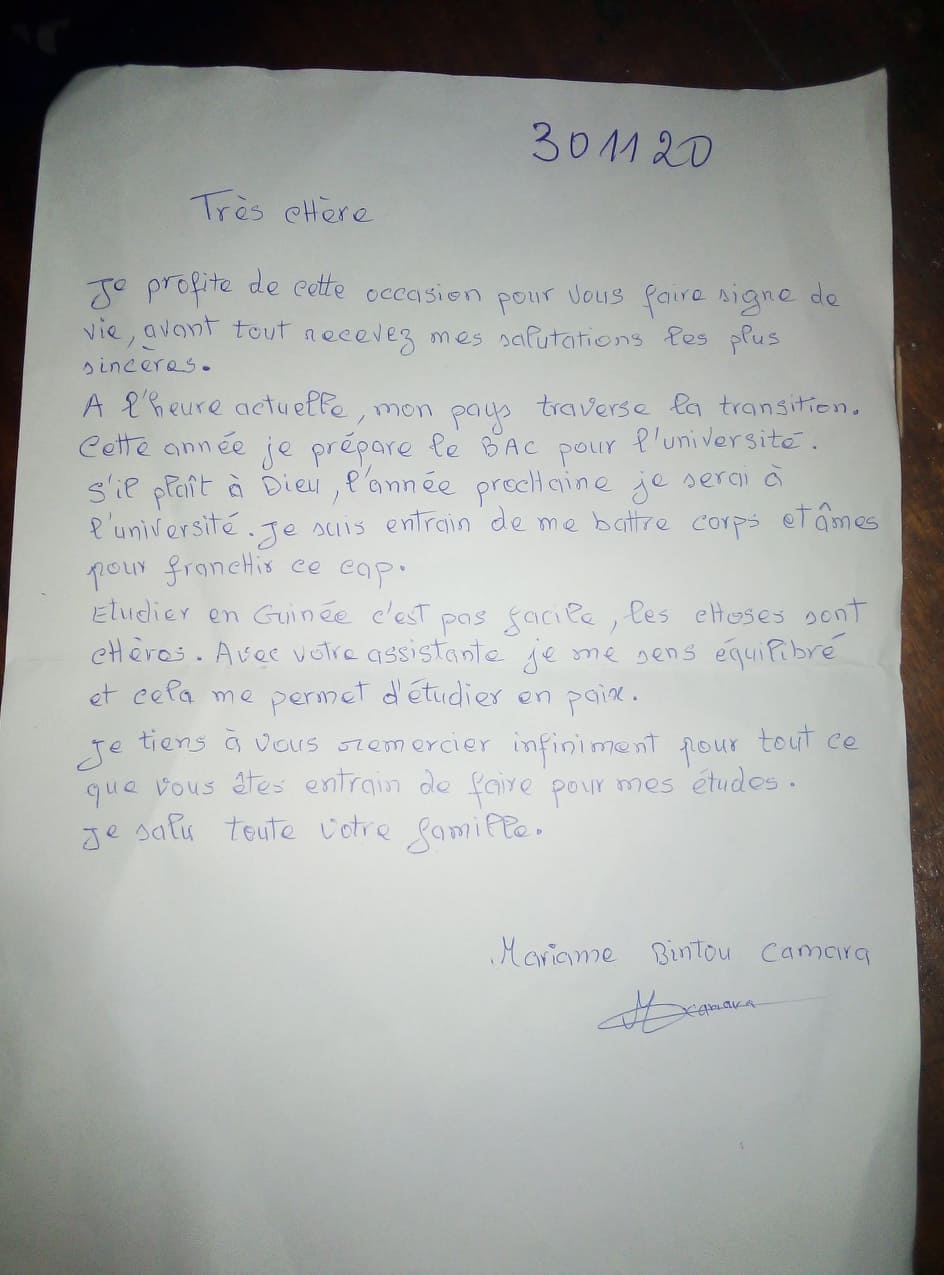 301120
Très chère
Je profite de cette occasion pour vous faire signe de
vie, avant tout recevez mes salutations les plus
sincères.
A l'heure actuelle, mon pays traverse la transition.
Cette année je prépare le BAC pour l'université.
S'il plaît à Dieu, l'année prochaine je serai à
l'université. Je suis entrain de me battre corps et âmes
pour franchir ce cap.
Etudier en Guinée c'est pas facile, les choses sont
chères. Avec votre assistante je me sens équilibré
et cela me permet d'étudier en paix.
Je tiens à vous remercier infiniment pour tout ce
que vous êtes entrain de faire pour mes études.
Je salu toute votre famille.
Mariame Bintou Camara
Camara